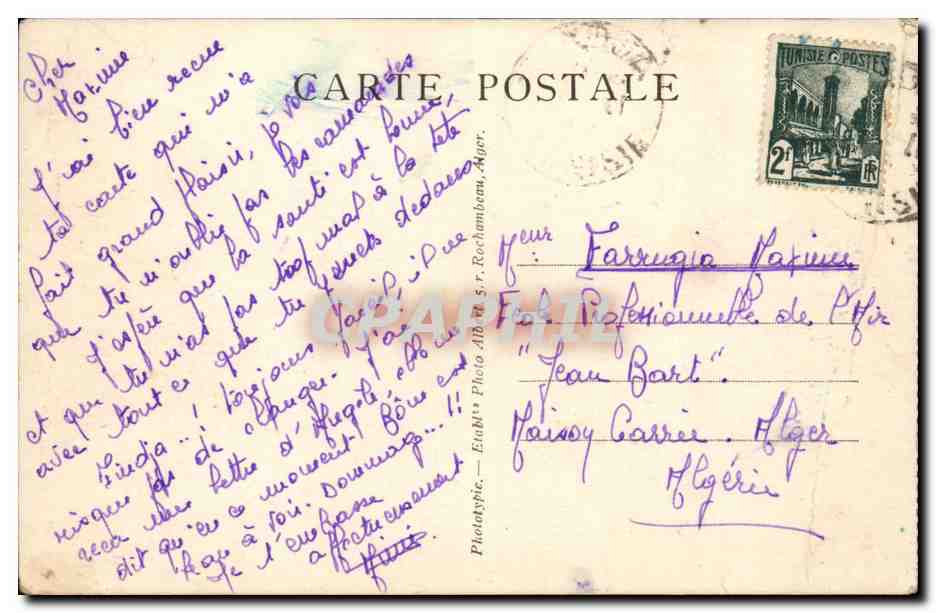 CARTE POSTALE
TUNISIE POSTES
2f
RF
Cher
Maxime
J'ai bien reçue
ta carte qui m'a
fait grand plaisir, je vois
que tu n'oublie pas les camarades
J'espère que la santé est bonne,
et que tu n'as pas trop mal à la tête
avec tout ce que tu fourres dedans
Findja...! toujours pareil, il ne
risque pas de changer. J'ai
reçu une lettre d'Angèle, elle me
dit qu'en ce moment Bône est
beau à voir. Dommage...!!
Je t'embrasse
affectueusement
Mimi
Phototypie. — Etablts Photo Albert, 5, r. Rochambeau, Alger.
CPAPHIL
Meur: Farrugia Maxime
Ecole Professionnelle de l'Air
"Jean Bart".
Maison Carrée. Alger
Algérie